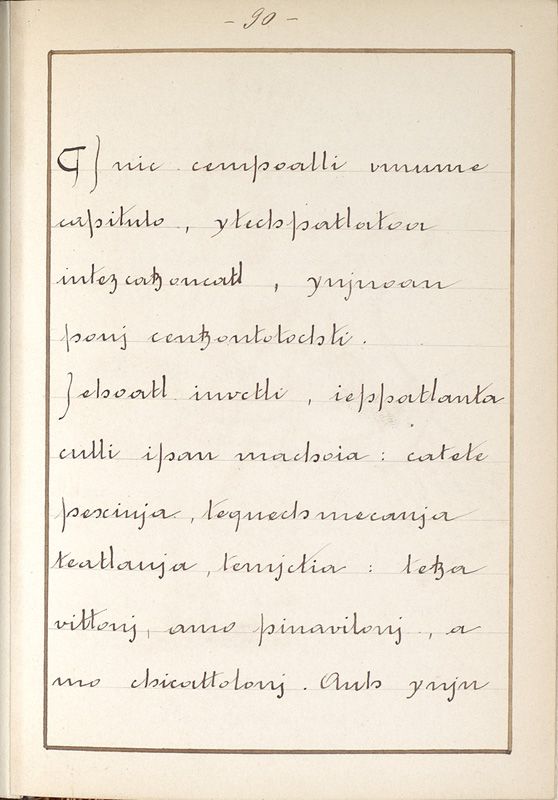 - 90 -
¶ Jnic cempoalli vmume
capitulo, ytechpatlatoa
intezcatzoncatl, ynjnoan
ponj centzontotochti.
Jehoatl invctli, ieppatlanta
culli ipan machoia: catete
pexiuja, tequechmecanja
teatlauja, temjctia: tetza
vittonj, amo pinavilonj, a
mo chicattolonj. Auh ynjn